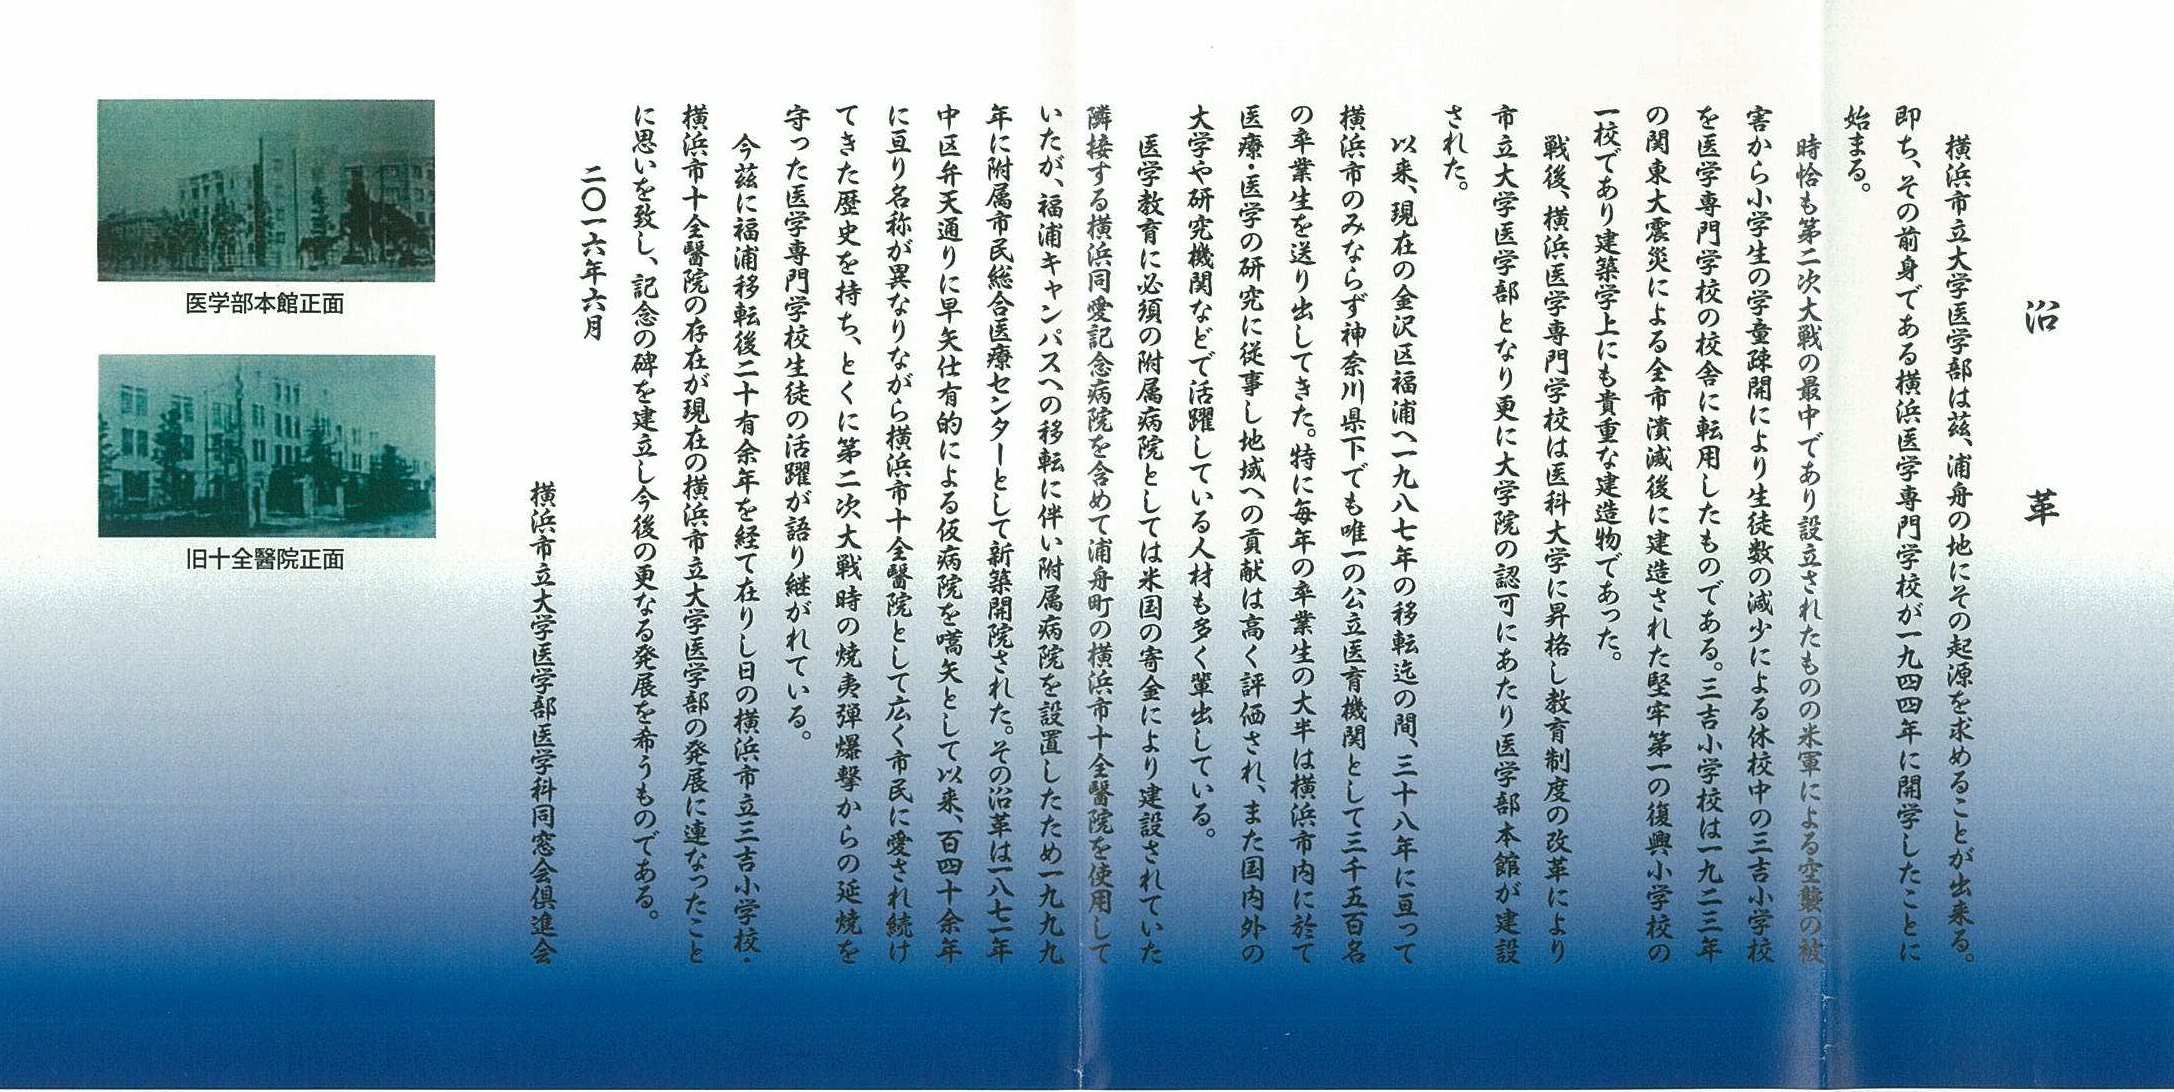 沿革
横浜市立大学医学部は茲、浦舟の地にその起源を求めることが出来る。
即ち、その前身である横浜医学専門学校が一九四四年に開学したことに
始まる。
時恰も第二次大戦の最中であり設立されたものの米軍による空襲の被
害から小学生の学童疎開により生徒数の減少による休校中の三吉小学校
を医学専門学校の校舎に転用したものである。三吉小学校は一九二三年
の関東大震災による全市潰滅後に建造された堅牢第一の復興小学校の
一校であり建築学上にも貴重な建造物であった。
戦後、横浜医学専門学校は医科大学に昇格し教育制度の改革により
市立大学医学部となり更に大学院の認可にあたり医学部本館が建設
された。
以来、現在の金沢区福浦へ一九八七年の移転迄の間、三十八年に亘って
横浜市のみならず神奈川県下でも唯一の公立医育機関として三千五百名
の卒業生を送り出してきた。特に毎年の卒業生の大半は横浜市内に於て
医療・医学の研究に従事し地域への貢献は高く評価され、また国内外の
大学や研究機関などで活躍している人材も多く輩出している。
医学教育に必須の附属病院としては米国の寄金により建設されていた
隣接する横浜同愛記念病院を含めて浦舟町の横浜市十全醫院を使用して
いたが、福浦キャンパスへの移転に伴い附属病院を設置したため一九九九
年に附属市民総合医療センターとして新築開院された。その沿革は一八七一年
中区弁天通りに早矢仕有的による仮病院を嚆矢として以来、百四十余年
に亘り名称が異なりながら横浜市十全醫院として広く市民に愛され続け
てきた歴史を持ち、とくに第二次大戦時の焼夷弾爆撃からの延焼を
守った医学専門学校生徒の活躍が語り継がれている。
今茲に福浦移転後二十有余年を経て在りし日の横浜市立三吉小学校・
横浜市十全醫院の存在が現在の横浜市立大学医学部の発展に連なったこと
に思いを致し、記念の碑を建立し今後の更なる発展を希うものである。
二〇一六年六月
横浜市立大学医学部医学科同窓会倶進会
医学部本館正面
旧十全醫院正面